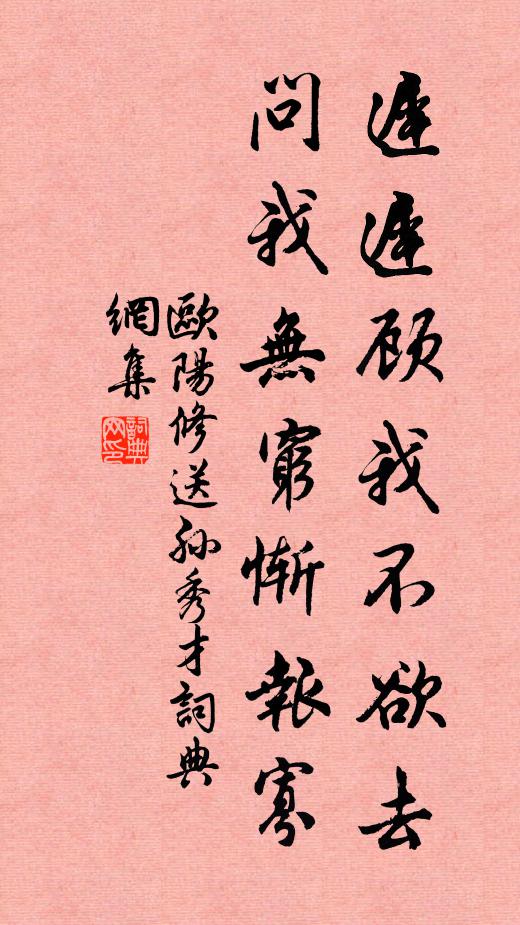 遲遲顧我不欲去
問我無窮慚報寡
歐陽修送孙秀才詞典
網集
詞典网印